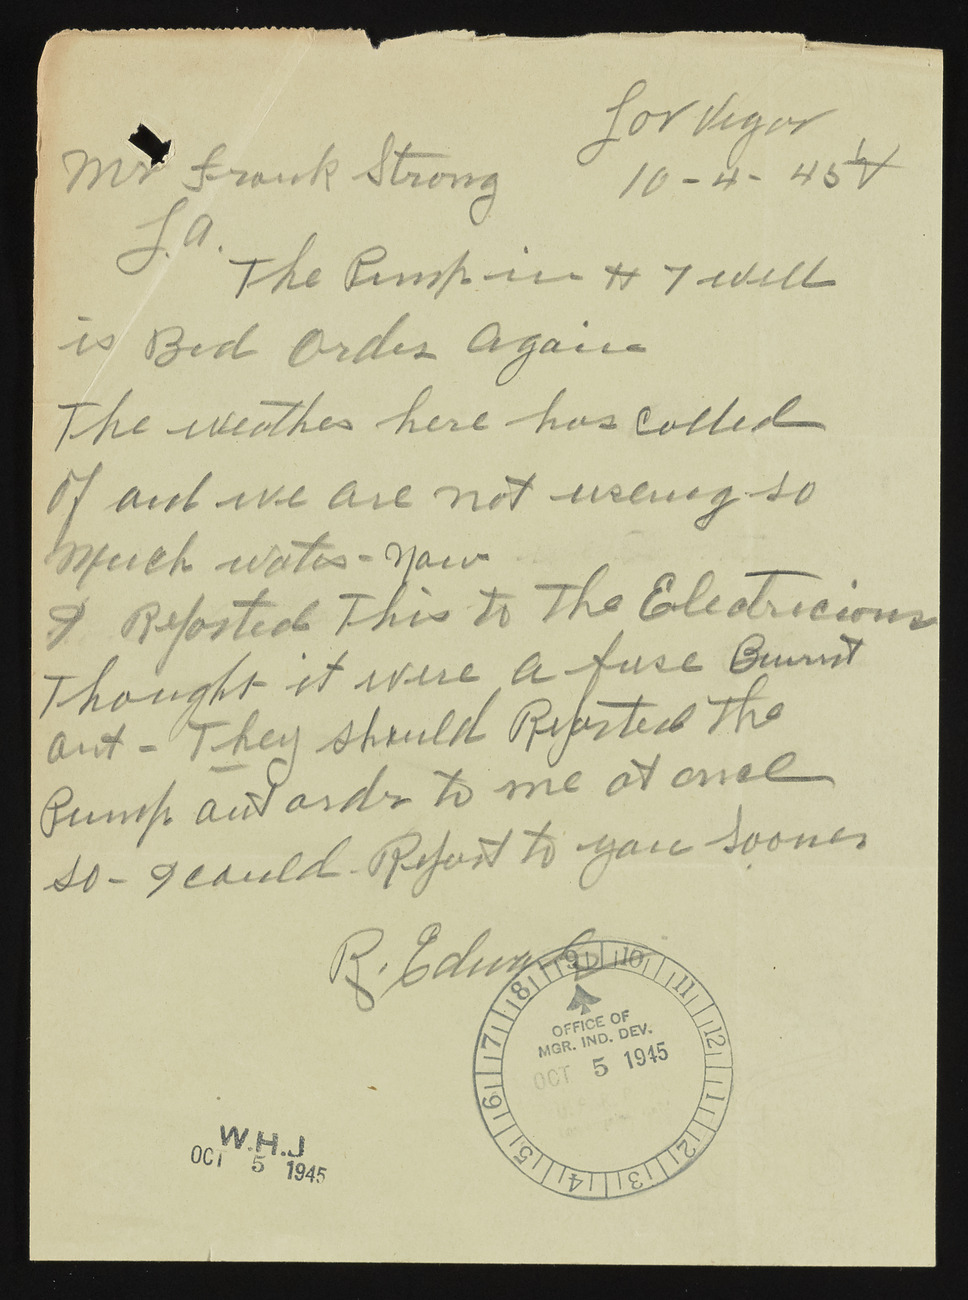 Los Vegos
Mr Frank Strong 10-4-45
L.A.
The Pump in # 7 well
is Bed Order Again
The weather here has Colled
Of and we are not useing so
Much water - Now
I Reported This to The Electricions
Thought it were a fuse Burnt
out - They should Reported The
Pump out order to me at once
so - I could Report to you sooner
R. Edwards
8 9 10 11 12 1 2 3 4 5 6 7
OFFICE OF
MGR. IND. DEV.
OCT 5 1945
W.H.J
OCT 5 1945